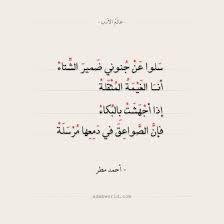 - عالم الأدب -
سَلوا عَنْ جُنوني ضَميرَ الشِّتاءْ
أنـا الغَيْمَةُ المُثْقَلَةْ
إذا أجْهَشَتْ بِالبُكاءْ
فإنَّ الصَّواعِقَ في دَمعِها مُرْسَلَةْ
- أحمد مطر
adabworld.com